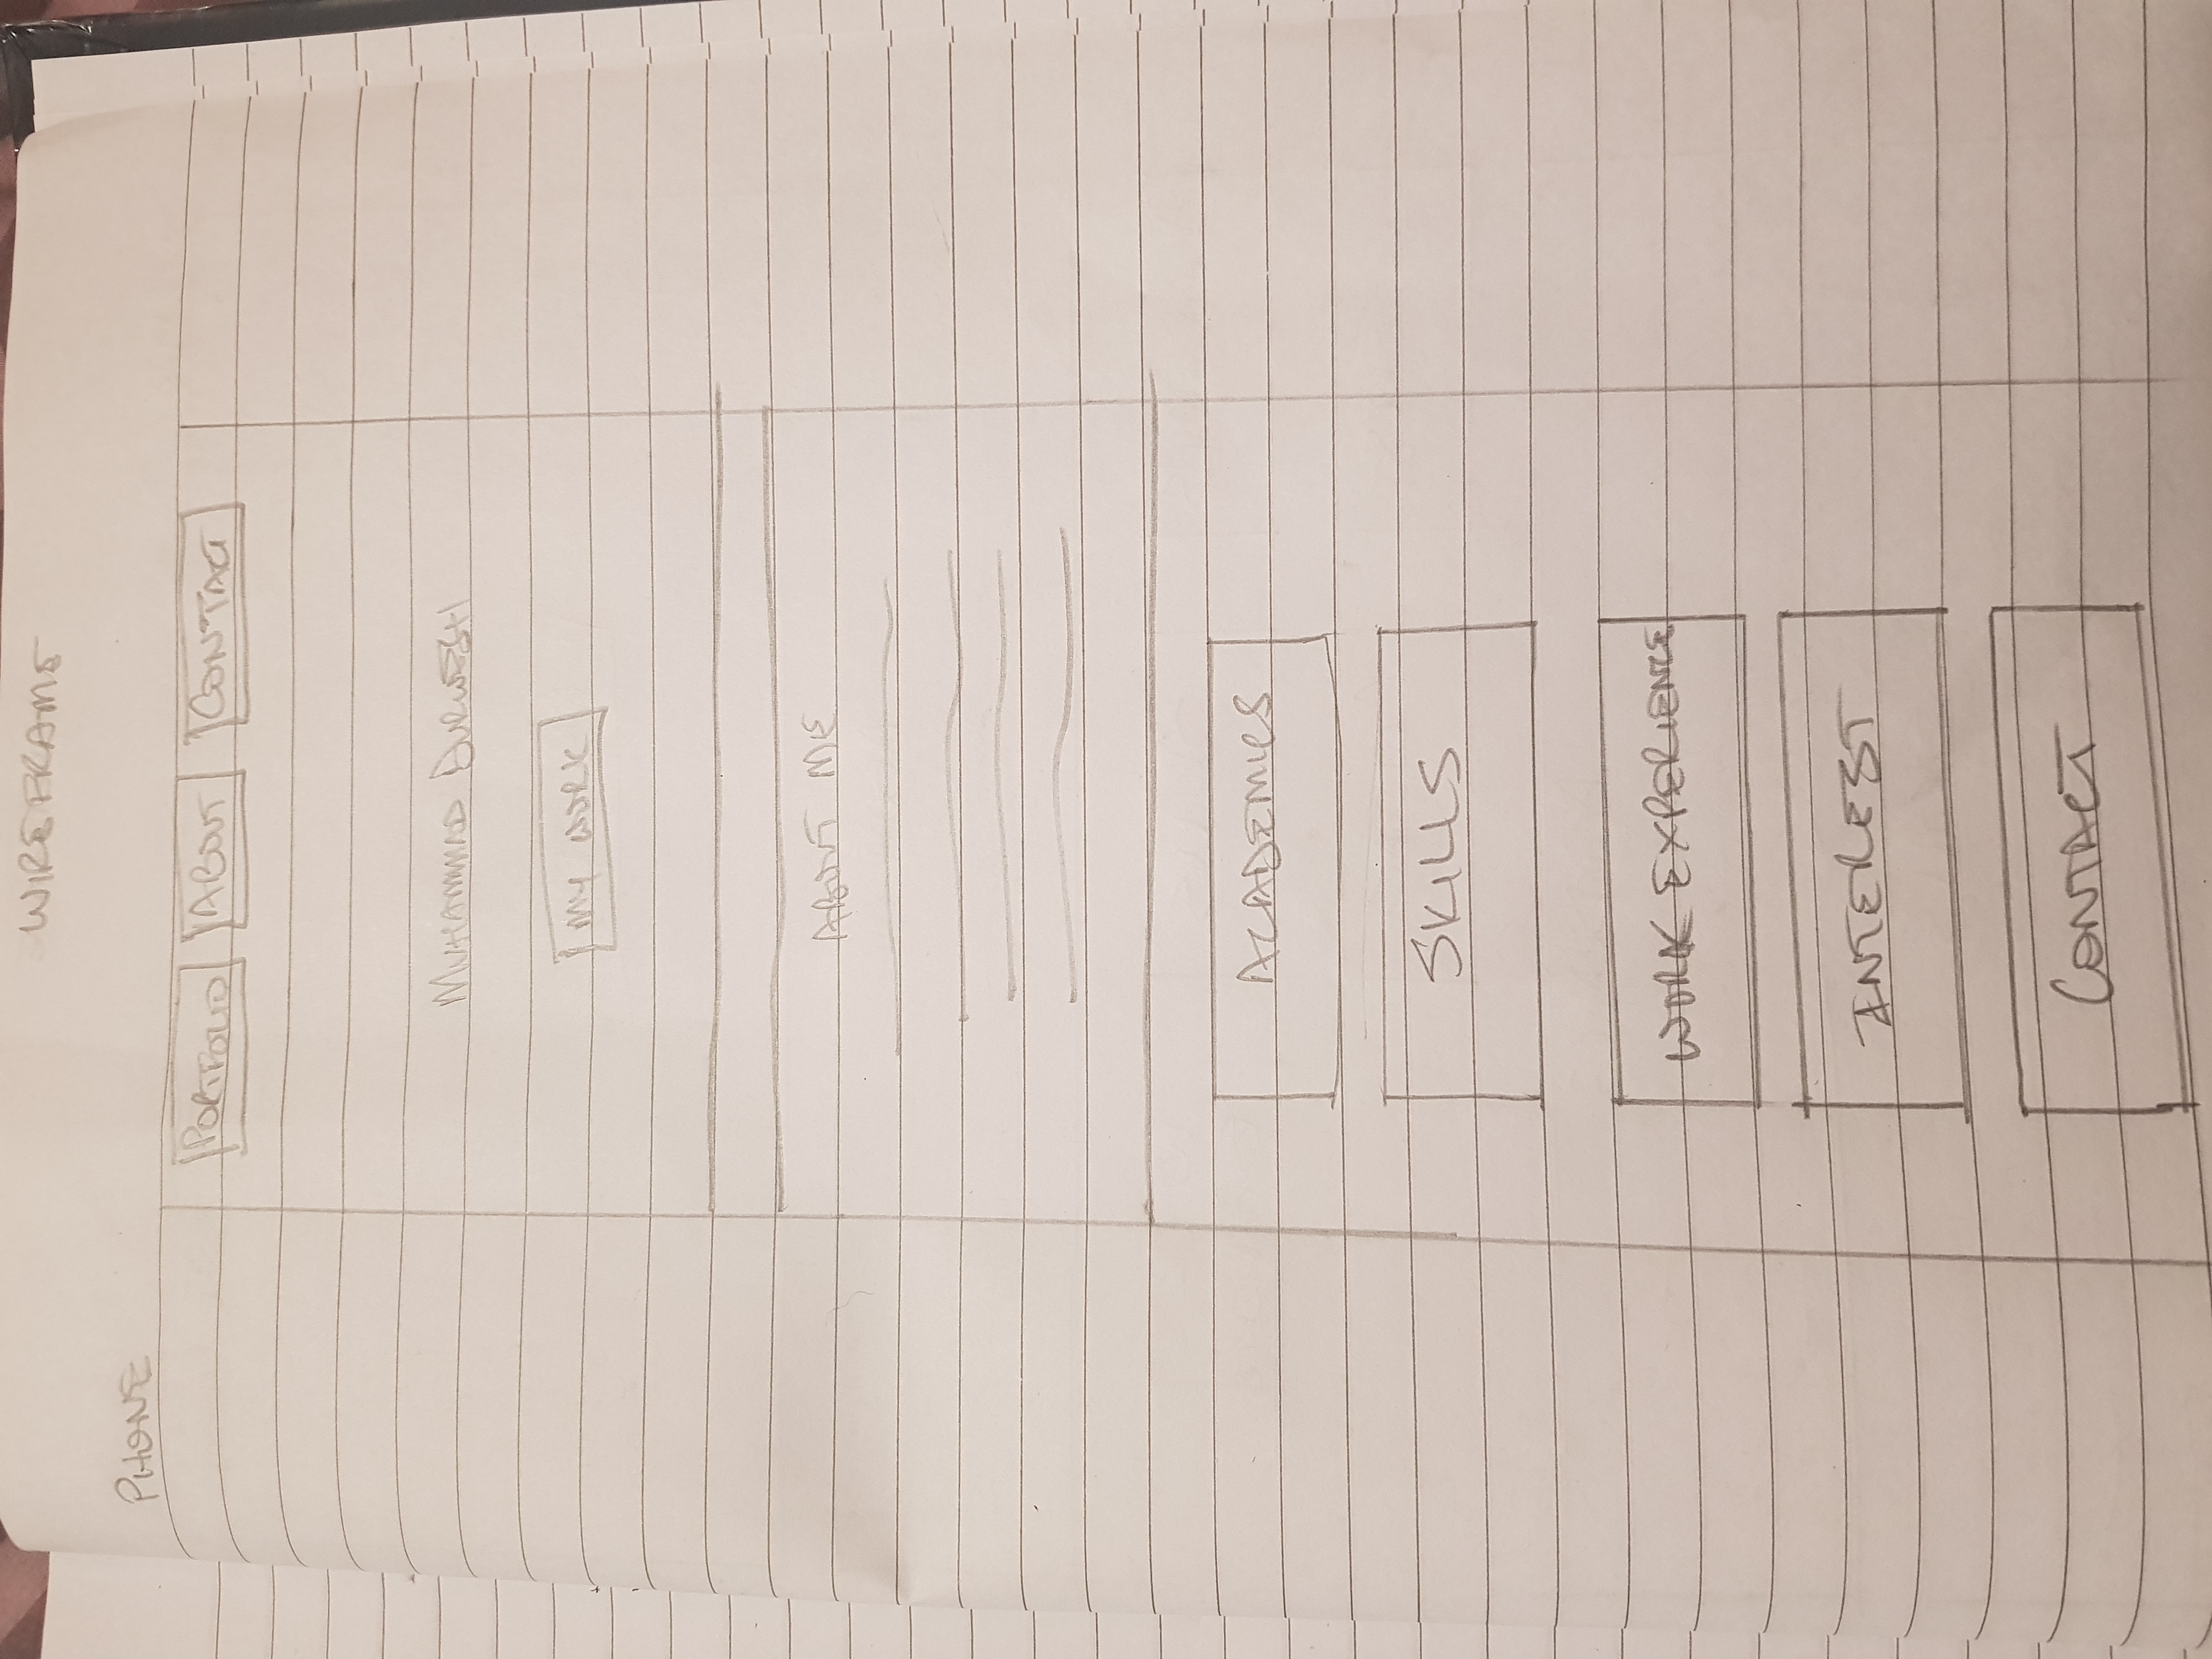 WIREFRAME
PHONE
PORTFOLIO ABOUT CONTACT
MUHAMMAD DURWESH
MY WORK
ABOUT ME
ACADEMICS
SKILLS
WORK EXPERIENCE
INTEREST
CONTACT